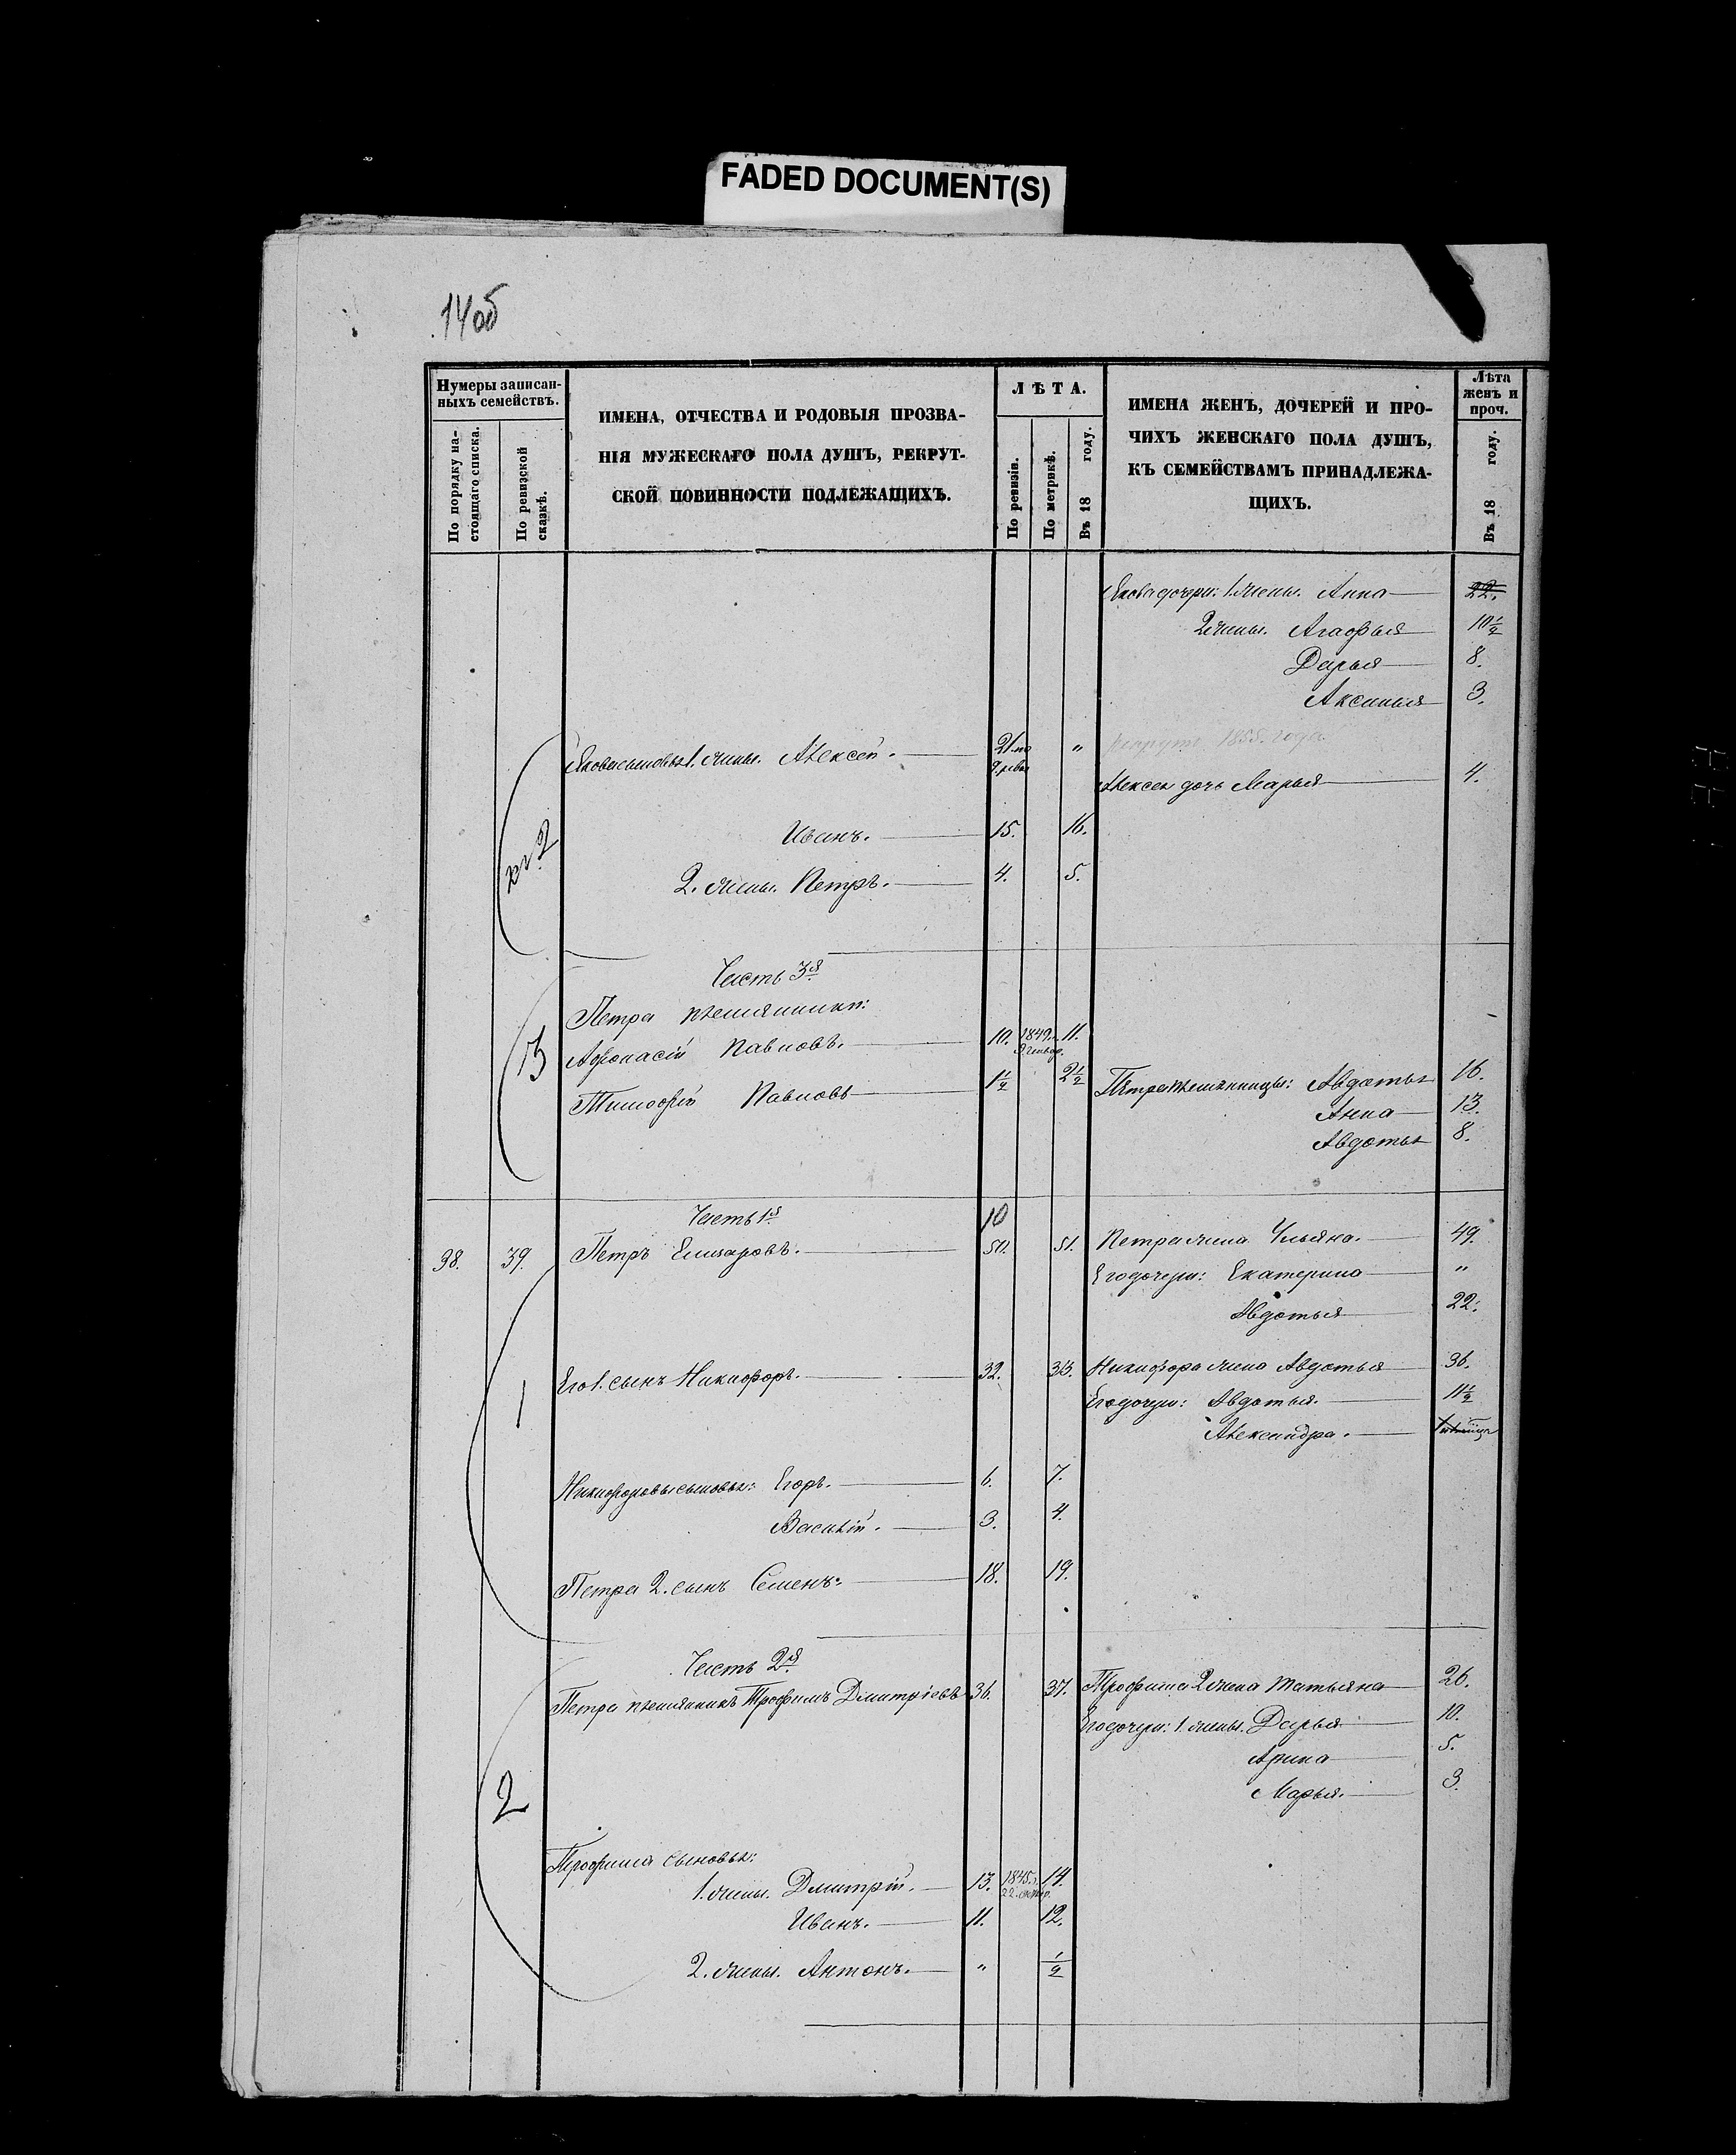 FADED DOCUMENT(S)
14об
Нумеры записан-
ныхъ семействъ.
По порядку на-
стоящаго списка.
По ревизской
сказкѣ.
ИМЕНА, ОТЧЕСТВА И РОДОВЫЯ ПРОЗВА-
НІЯ МУЖЕСКАГО ПОЛА ДУШЪ, РЕКРУТ-
СКОЙ ПОВИННОСТИ ПОДЛЕЖАЩИХЪ.
ЛѢТА.
По ревизіи.
По метрикѣ.
Въ 18 году.
ИМЕНА ЖЕНЪ, ДОЧЕРЕЙ И ПРО-
ЧИХЪ ЖЕНСКАГО ПОЛА ДУШЪ,
КЪ СЕМЕЙСТВАМЪ ПРИНАДЛЕЖА-
ЩИХЪ.
Лѣта
женъ и
проч.
Въ 18 году.
Якова дочери: 1. жены. Анна 22.
2 жены. Агафья 10½
Дарья 8.
Аксинья 3.
Якова сыновья 1. жены. Алексей. 21. по 9. рев. " рекрутъ 1855. года
Алексея дочь Марья 4.
Иванъ. 15. 16.
2. жены. Петръ. 4. 5.
2
Часть 3я
Петра племянники:
Афонасій Павловъ. 10. 1849. 11.
Тимофей Павловъ 1½ 2½ Петра племянницы: Авдотья 16.
Анна 13.
Авдотья 8.
3
Часть 1я 10
38. 39. Петръ Елизаровъ. 50. 51. Петра жена Ульяна. 49.
Его дочери: Екатерина "
Авдотья 22.
1
Его 1. сынъ Никифоръ. 32. 33. Никифора жена Авдотья 36.
Его дочери: Авдотья. 11½
Александра.
Никифоровы сыновья: Егоръ. 6. 7.
Василій. 3. 4.
Петра 2. сынъ Семенъ. 18. 19.
Часть 2я
Петра племянникъ Трофимъ Дмитріевъ 36. 37. Трофима 2 жена Татьяна 26.
Его дочери: 1. жены. Дарья 10.
Арина 5.
Марья. 3.
2
Трофима сыновья:
1. жены. Дмитрій. 13. 1845. 14.
Иванъ. 11. 12.
2. жены. Антонъ. " ½